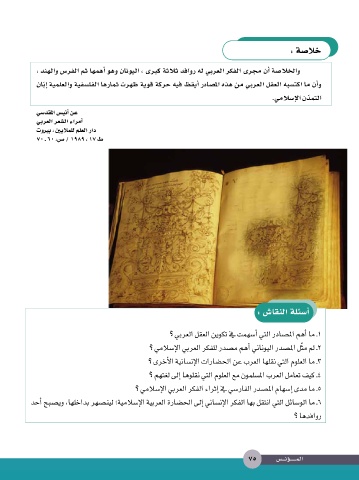 خلاصة :
والخلاصة أن مجرى الفكر العربي له روافد ثلاثة كبرى ، اليونان ، وهو أهمها ثم الفرس والهند ،
وأن ما اكتسبه العقل العربي من هذه المصادر أيقظ فيه حركة قوية ظهرت ثمارها الفلسفية والعلمية إبّان
التمدّن الإسلامي.
عن أنيس المقدسي
أمراء الشعر العربي
دار العلم للملايين ، بيروت
ط ١٧ ، ١٩٨٩ / ص. ٦٠ ـ ٧٠
أسئلة النقاش :
١. ما أهم المصادر التي أسهمت في تكوين العقل العربي ؟
٢. لم مثّل المصدر اليوناني أهم مصدر للفكر العربي الإسلامي ؟
٣. ما العلوم التي نقلها العرب عن الحضارات الإنسانية الأخرى ؟
٤. كيف تعامل العرب المسلمون مع العلوم التي نقلوها إلى لغتهم ؟
٥. ما مدى إسهام المصدر الفارسي في إثراء الفكر العربي الإسلامي ؟
٦. ما الوسائل التي انتقل بها الفكر الإنساني إلى الحضارة العربية الإسلامية؛ لينصهر بداخلها، ويصبح أحد
روافدها ؟
٧٥